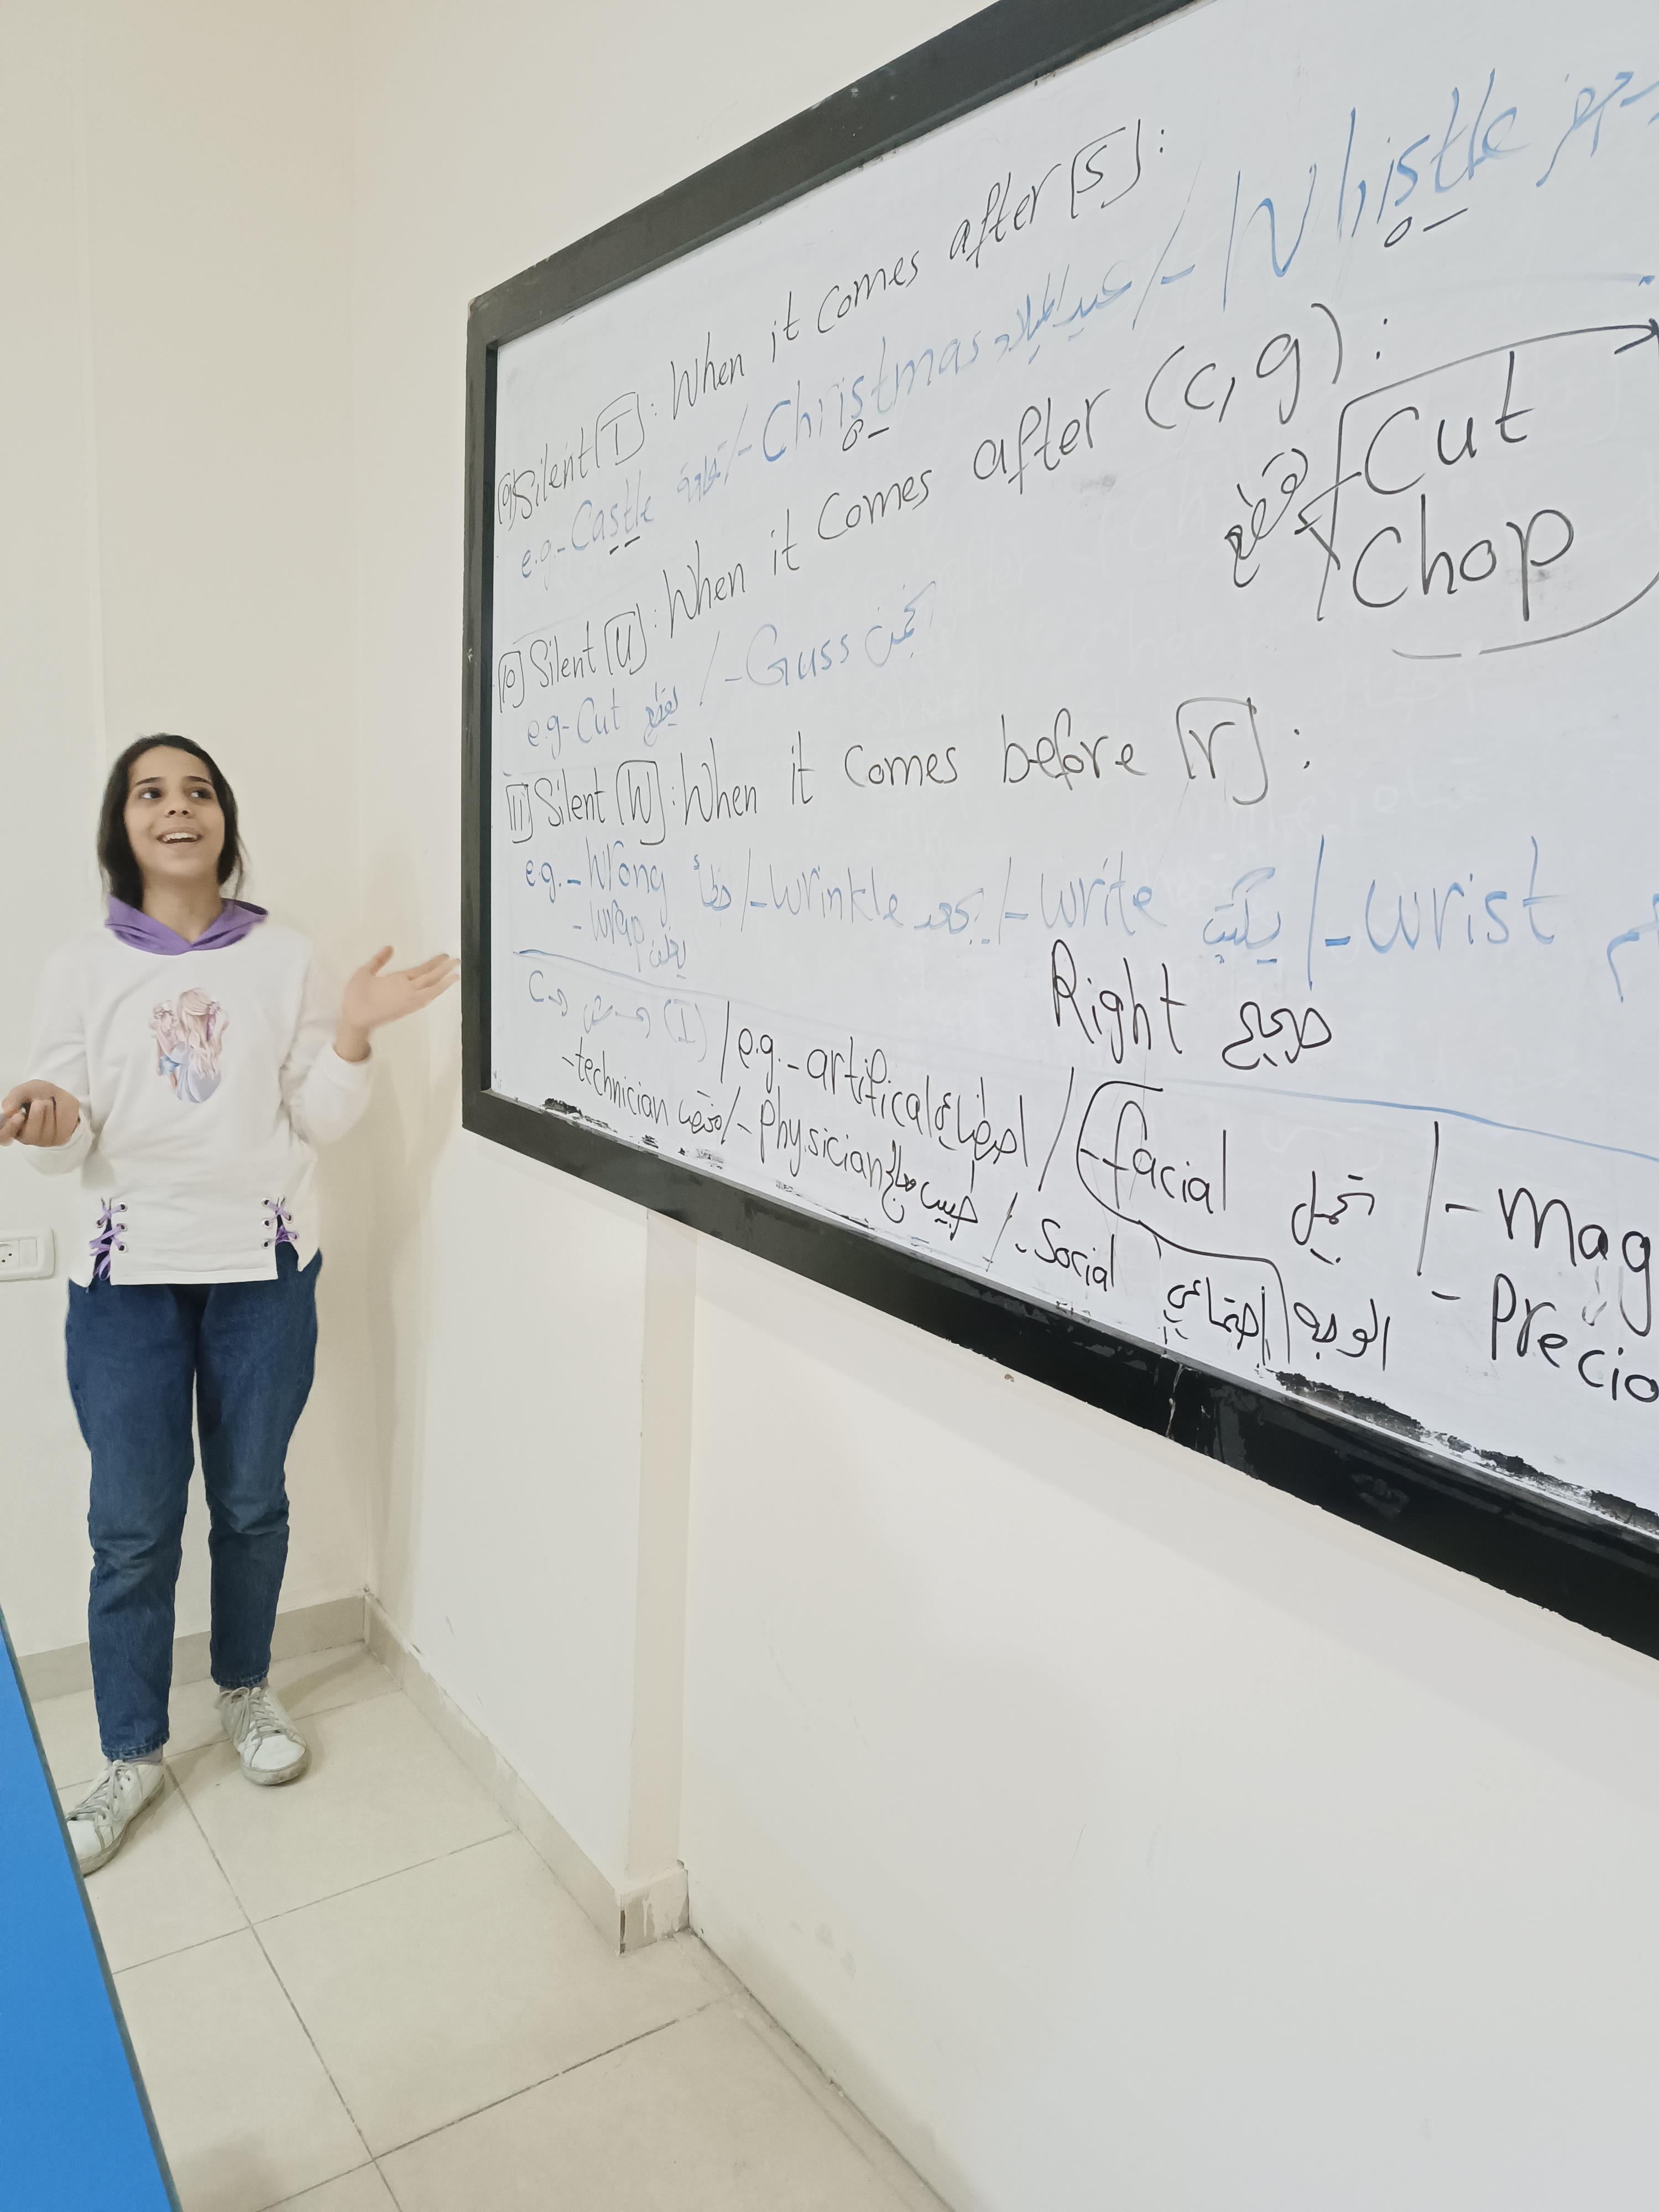 (9) Silent [T]: When it comes after [S]:
e.g - Castle قلعة / - Christmas عيد الميلاد / - Whistle
[10] Silent [U]: When it comes after (c, g):
e.g - Cut يقطع / - Guss يخمن
Cut
Chop
[11] Silent [W]: When it comes before [r]:
e.g. - Wrong خطأ / - wrinkle يجعد / - write يكتب / - wrist
- wrap يغلف
Right صحيح
(I) / e.g. - artifical اصطناعي / - facial تجميل / - mag
- technician / - physician طبيب / . Social اجتماعي الوجه - Precio